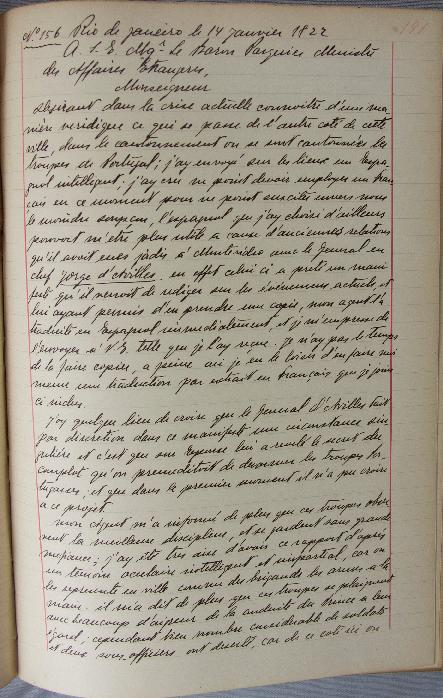 Nº 156 Rio de janeiro le 14 janvier 1822
191
A. S. E. Mgr. Le Baron Pasquier Ministre
des Affaires Etrangeres,
Monseigneur
desirant dans la crise actuelle connoitre d'une ma-
nière veridique ce qui se passe de l'autre coté de cette
ville, dans le cantonnement ou se sont cantonnées les
troupes de Portugal; j'ay envoyé sur les lieux un Espa-
gnol intelligent; j'ay cru ne point devoir employer un Fran
çais en ce moment pour ne point susciter envers nous
le moindre soupçon, l'espagnol que j'ay choisi d'ailleurs
pouvoit m'être plus utile a cause d'anciennes relations
qu'il avoit eues jadis a Montevideo avec le General en
chef Jorge d'Avilles. en effet celui ci a prêté un mani
feste qu'il venoit de rediger sur les évènemens actuels, et
lui ayant permis d'en prendre une copie, mon agent l'a
traduite en Espagnol immediatement, et je m'empresse de
l'envoyer a V. E. telle que je l'ay reçue. je n'ay pas le temps
de la faire copier, a peine ai je eu le loisir d'en faire moi
meme une traduction par extrait en français que je joins
ci inclus.
j'ay quelque lieu de croire que le General d'Avilles tait
par discretion dans ce manifeste une circonstance sin
gulière et c'est que son Epouse lui a revelé le secret du
complot qu'on premeditoit de desarmer les troupes Por-
tugaises, et que dans le premier moment il n'a pu croire
a ce projet.
mon agent m'a informé de plus que ces troupes obser
vent la meilleure discipline, et se gardent sans grande
mefiance; j'ay eté très aise d'avoir ce rapport d'après
un temoin oculaire intelligent et impartial, car on
les represente en ville comme des brigands les armes a la
main. il m'a dit de plus que ces troupes se plaignent
avec beaucoup d'aigreur de la conduite du Prince a leur
egard, cependant bien nombre considerable de soldats
et deux sous-officiers ont deserté, car de ce coté ici on